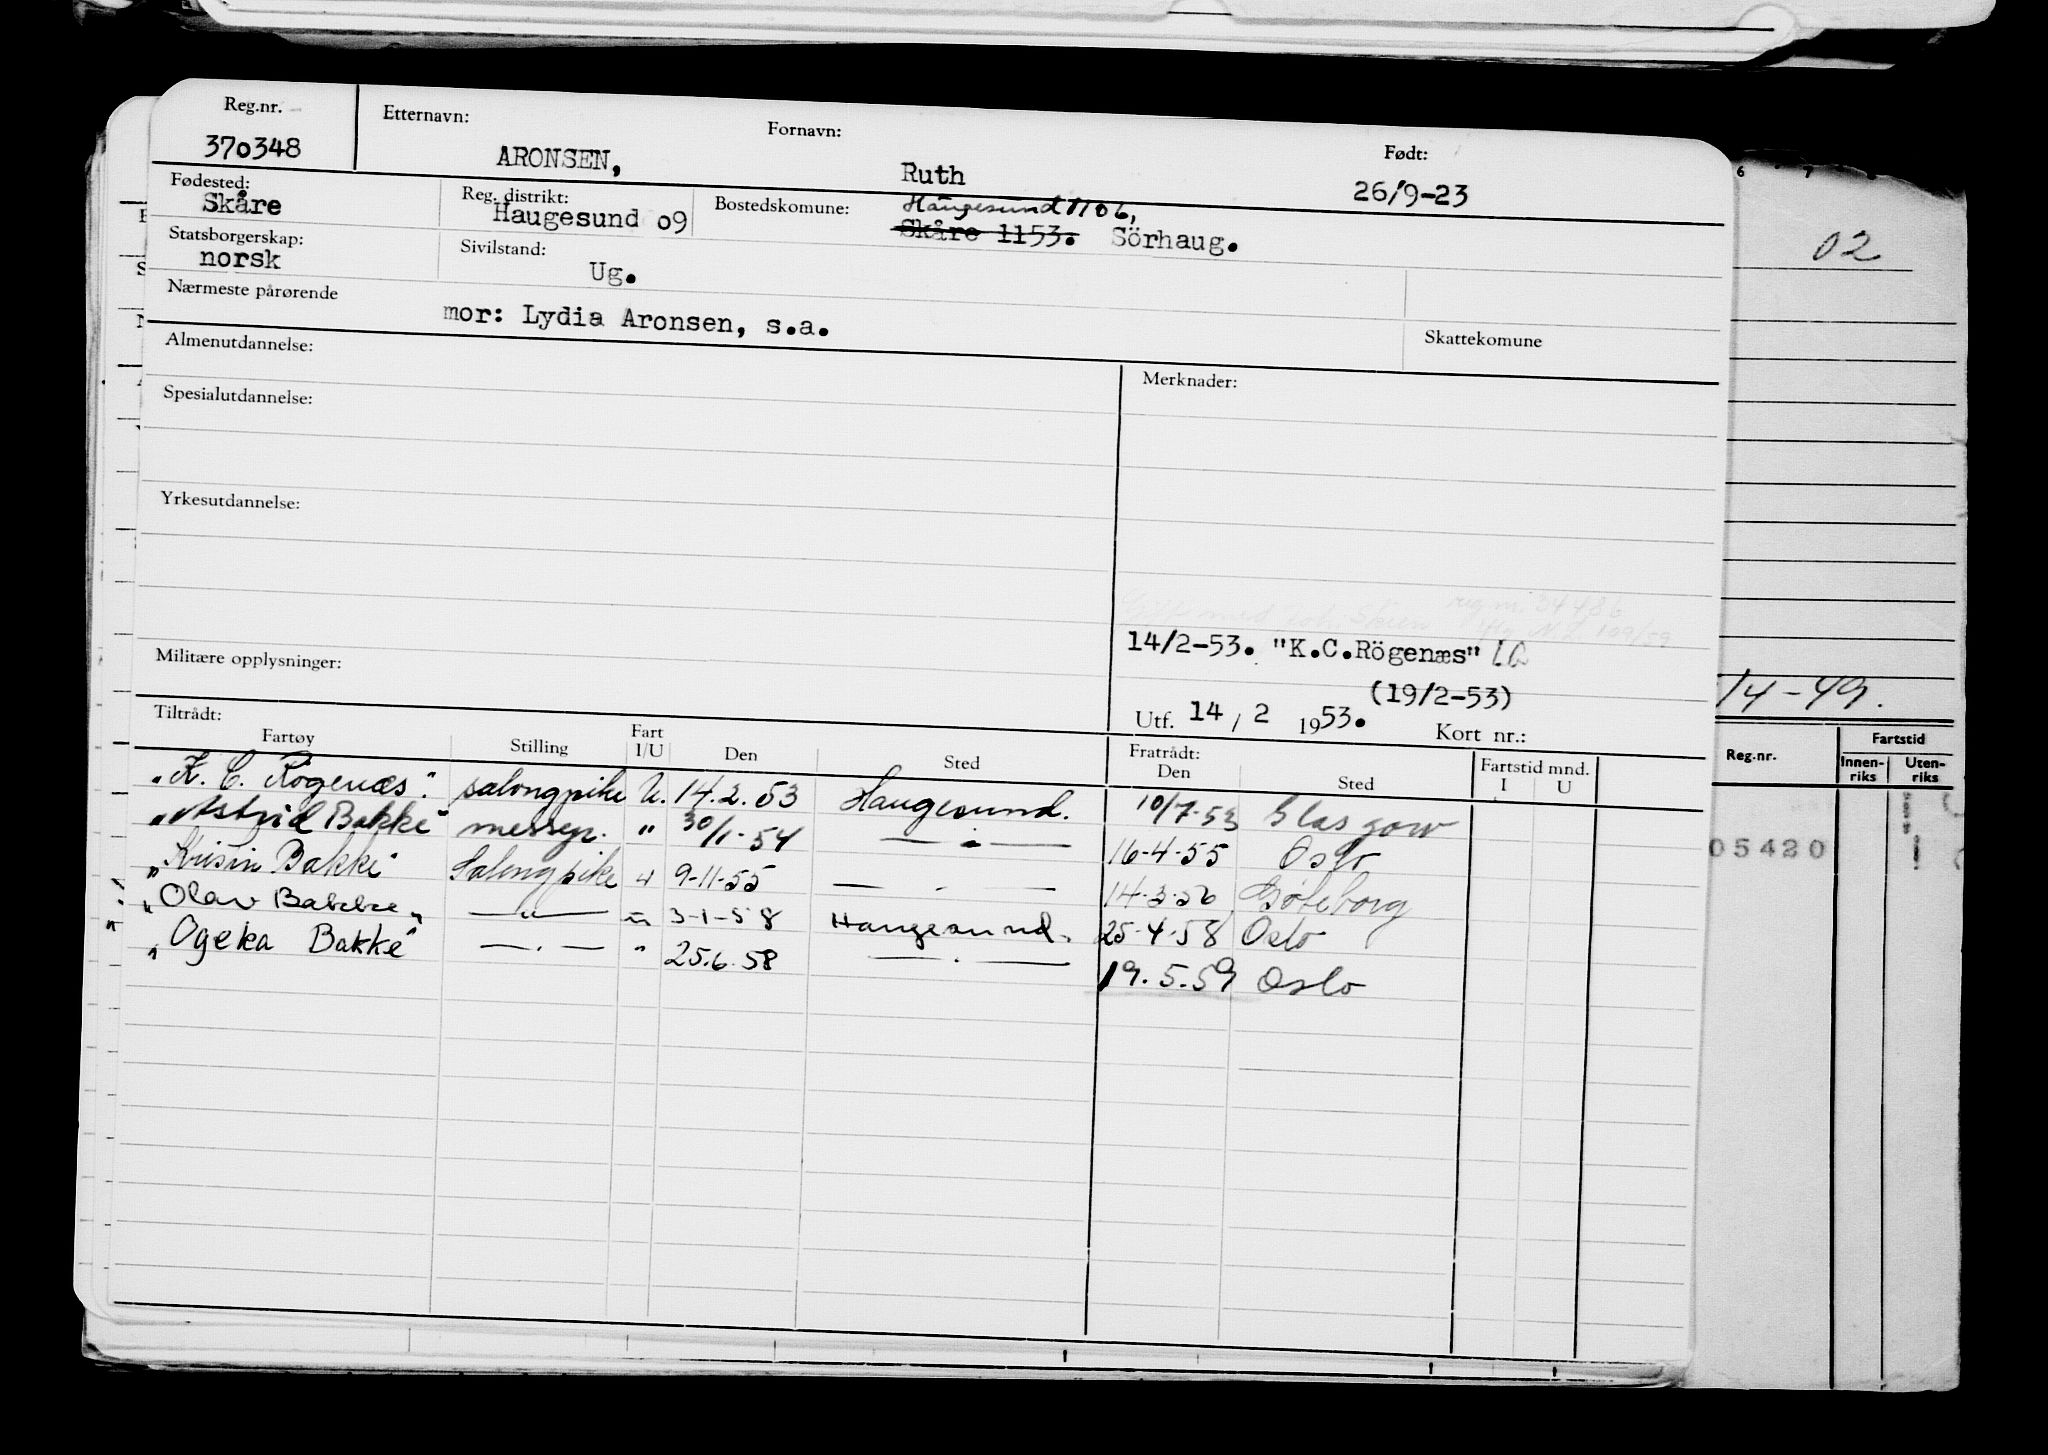 Reg.nr. Etternavn: Fornavn: Født:
370348 ARONSEN, Ruth 26/9-23
Fødested: Reg. distrikt: Bostedskomune: Haugesund 1106,
Skåre Haugesund 09 Skåre 1153. Sörhaug.
Statsborgerskap: Sivilstand:
norsk Ug.
Nærmeste pårørende
mor: Lydia Aronsen, s.a.
Skattekomune
Almenutdannelse: Merknader:
Spesialutdannelse:
Yrkesutdannelse:
14/2-53. "K.C.Rögenæs"
Militære opplysninger:
(19/2-53)
Utf. 14 / 2 1953. Kort nr.:
Tiltrådt: Fratrådt: Fartstid mnd.
Fartøy Stilling Fart I/U Den Sted Den Sted I U
"K. C. Rogenæs". salongpike U. 14.2.53 Haugesund. 10/7-53 Glasgow
"Astrid Bakke" messep. " 30/1-54 — " — 16-4-55 Oslo
"Kristin Bakke" Salongpike " 9-11-55 — " — 14-3-56 Gøteborg
"Olav Bakke" — " — " 3-1-58 Haugesund. 25-4-58 Oslo
"Ogeka Bakke" — " — " 25.6.58 — " — 19.5.59 Oslo
6 7
02
14-49.
Reg.nr. Fartstid
Innen-riks Uten-riks
05420